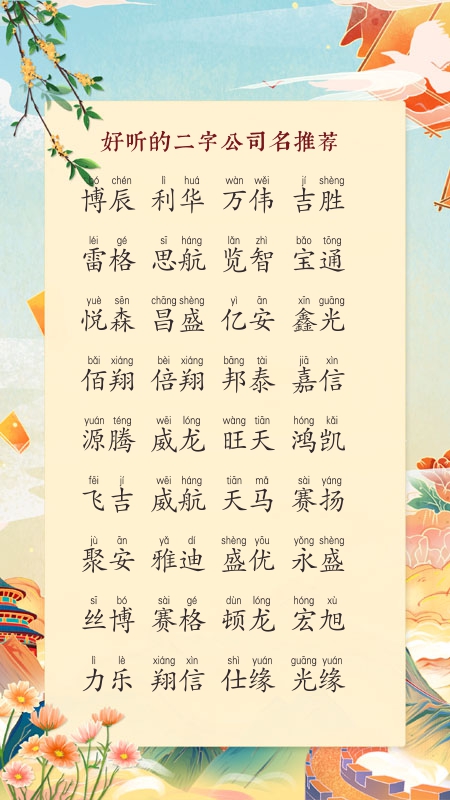 好听的二字公司名推荐
bó chén lì huá wàn wěi jí shèng
博辰 利华 万伟 吉胜
léi gé sī háng lǎn zhì bǎo tōng
雷格 思航 览智 宝通
yuè sēn chāng shèng yì ān xīn guāng
悦森 昌盛 亿安 鑫光
bǎi xiáng bèi xiáng bāng tài jiā xìn
佰翔 倍翔 邦泰 嘉信
yuán téng wēi lóng wàng tiān hóng kǎi
源腾 威龙 旺天 鸿凯
fēi jí wēi háng tiān mǎ sài yáng
飞吉 威航 天马 赛扬
jù ān yǎ dí shèng yōu yǒng shèng
聚安 雅迪 盛优 永盛
sī bó sài gé dùn lóng hóng xù
丝博 赛格 顿龙 宏旭
lì lè xiáng xìn shì yuán guāng yuán
力乐 翔信 仕缘 光缘